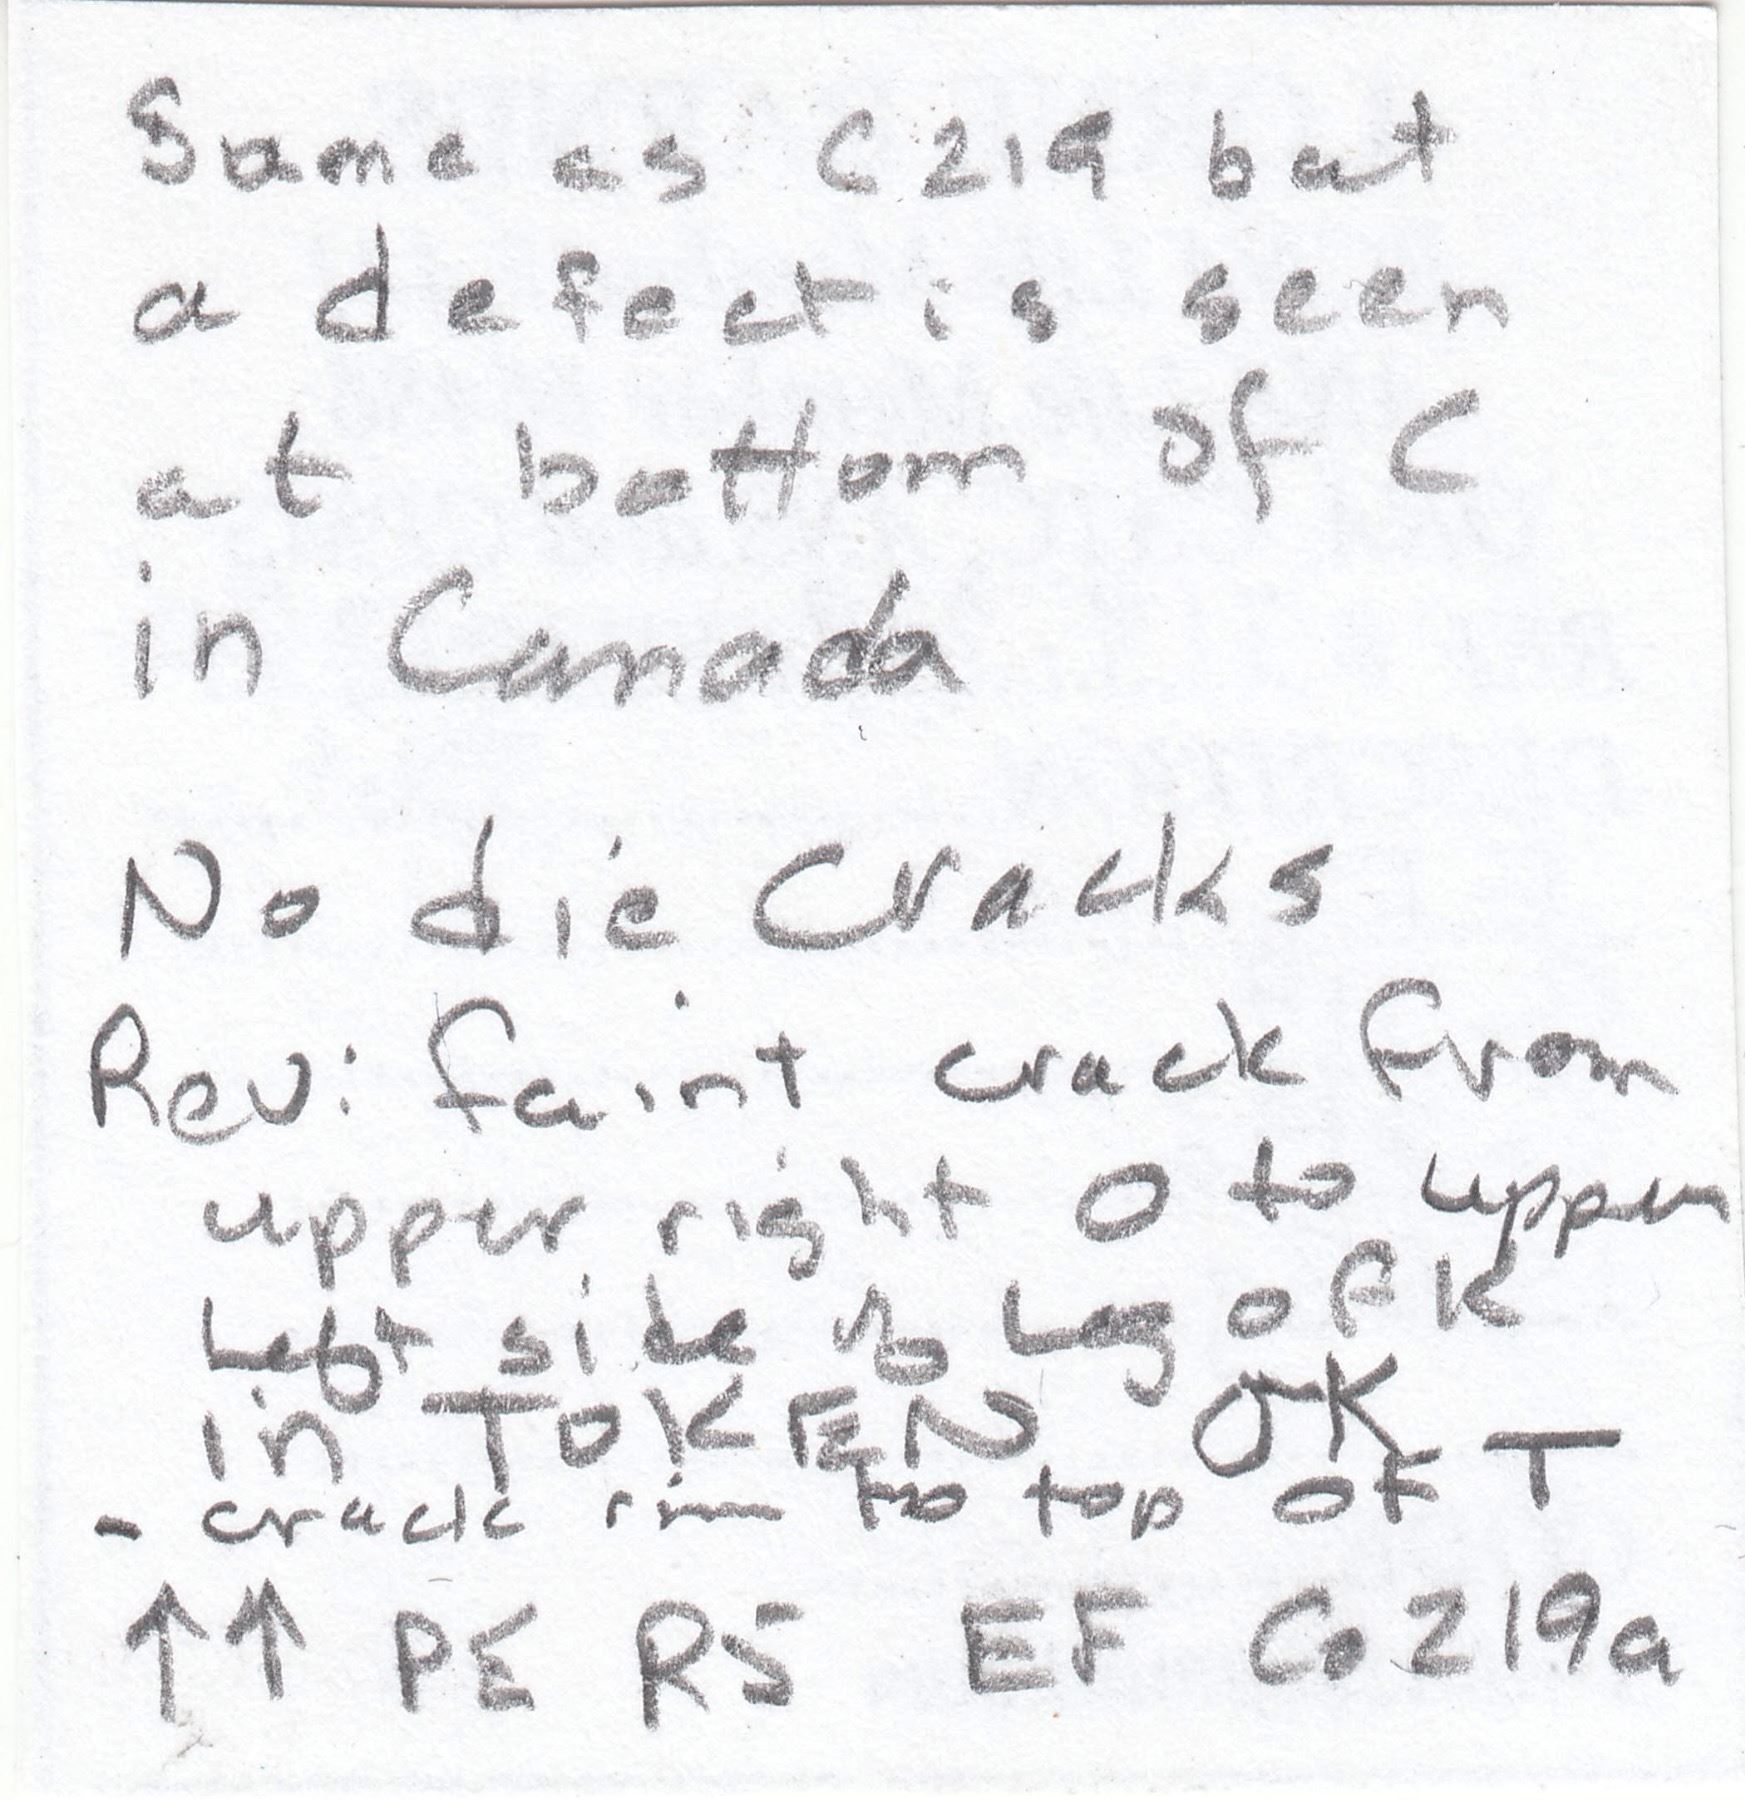 Same as C219 but
a defect is seen
at bottom of C
in Canada
No die Cracks
Rev: faint crack from
upper right O to upper
left side Leg of K
in TOKEN OK
- crack rim to top of T
↑↑ PE R5 EF Co219a